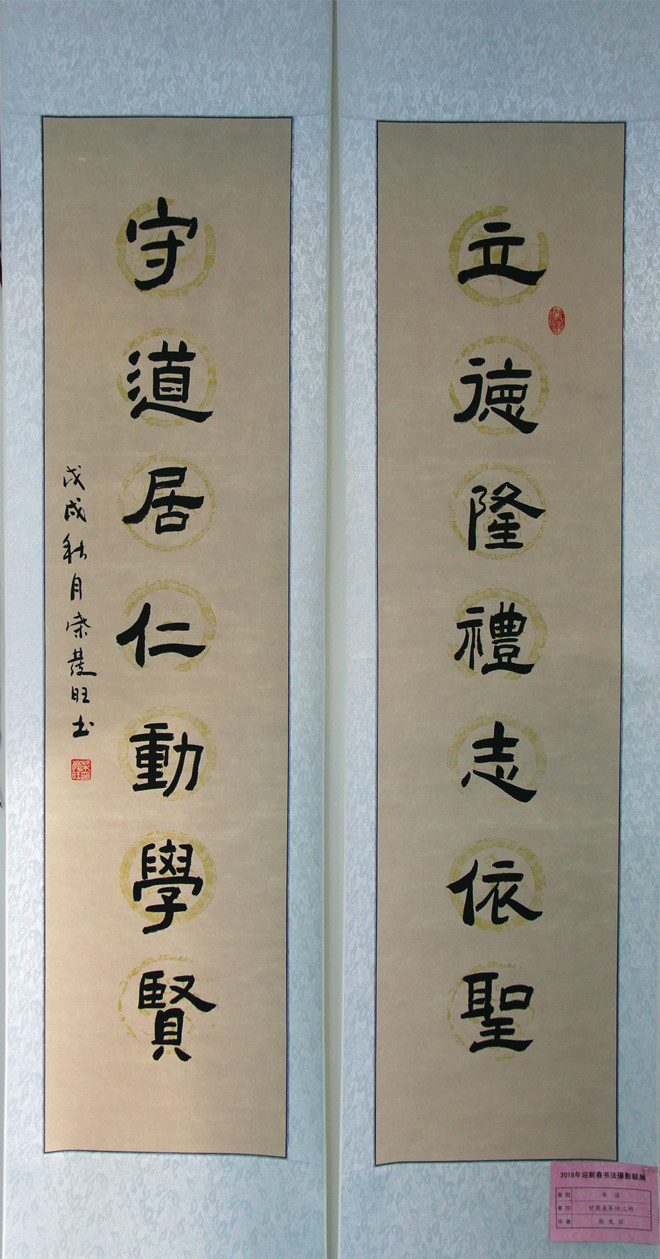 立德隆禮志依聖
守道居仁動學賢
戊戌秋月柴發旺书
2018年迎新春书法摄影联展